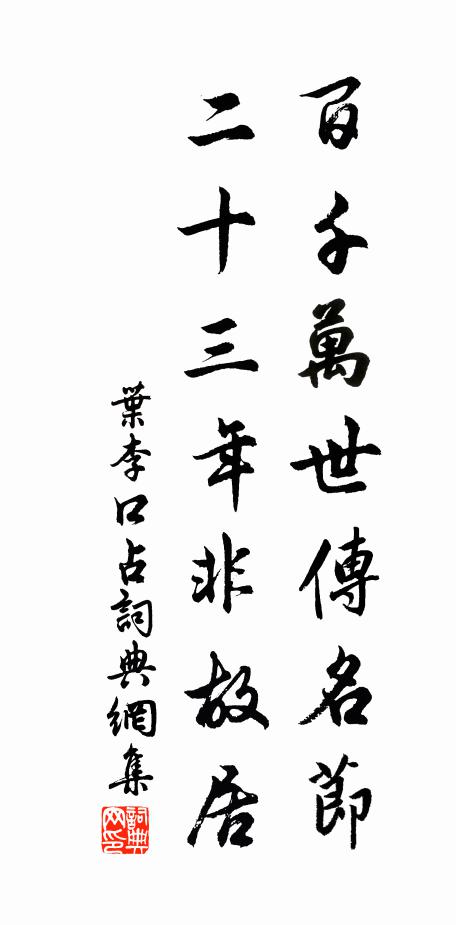 百千萬世傳名節
二十三年非故居
葉李口占詞典網集
詞典網印